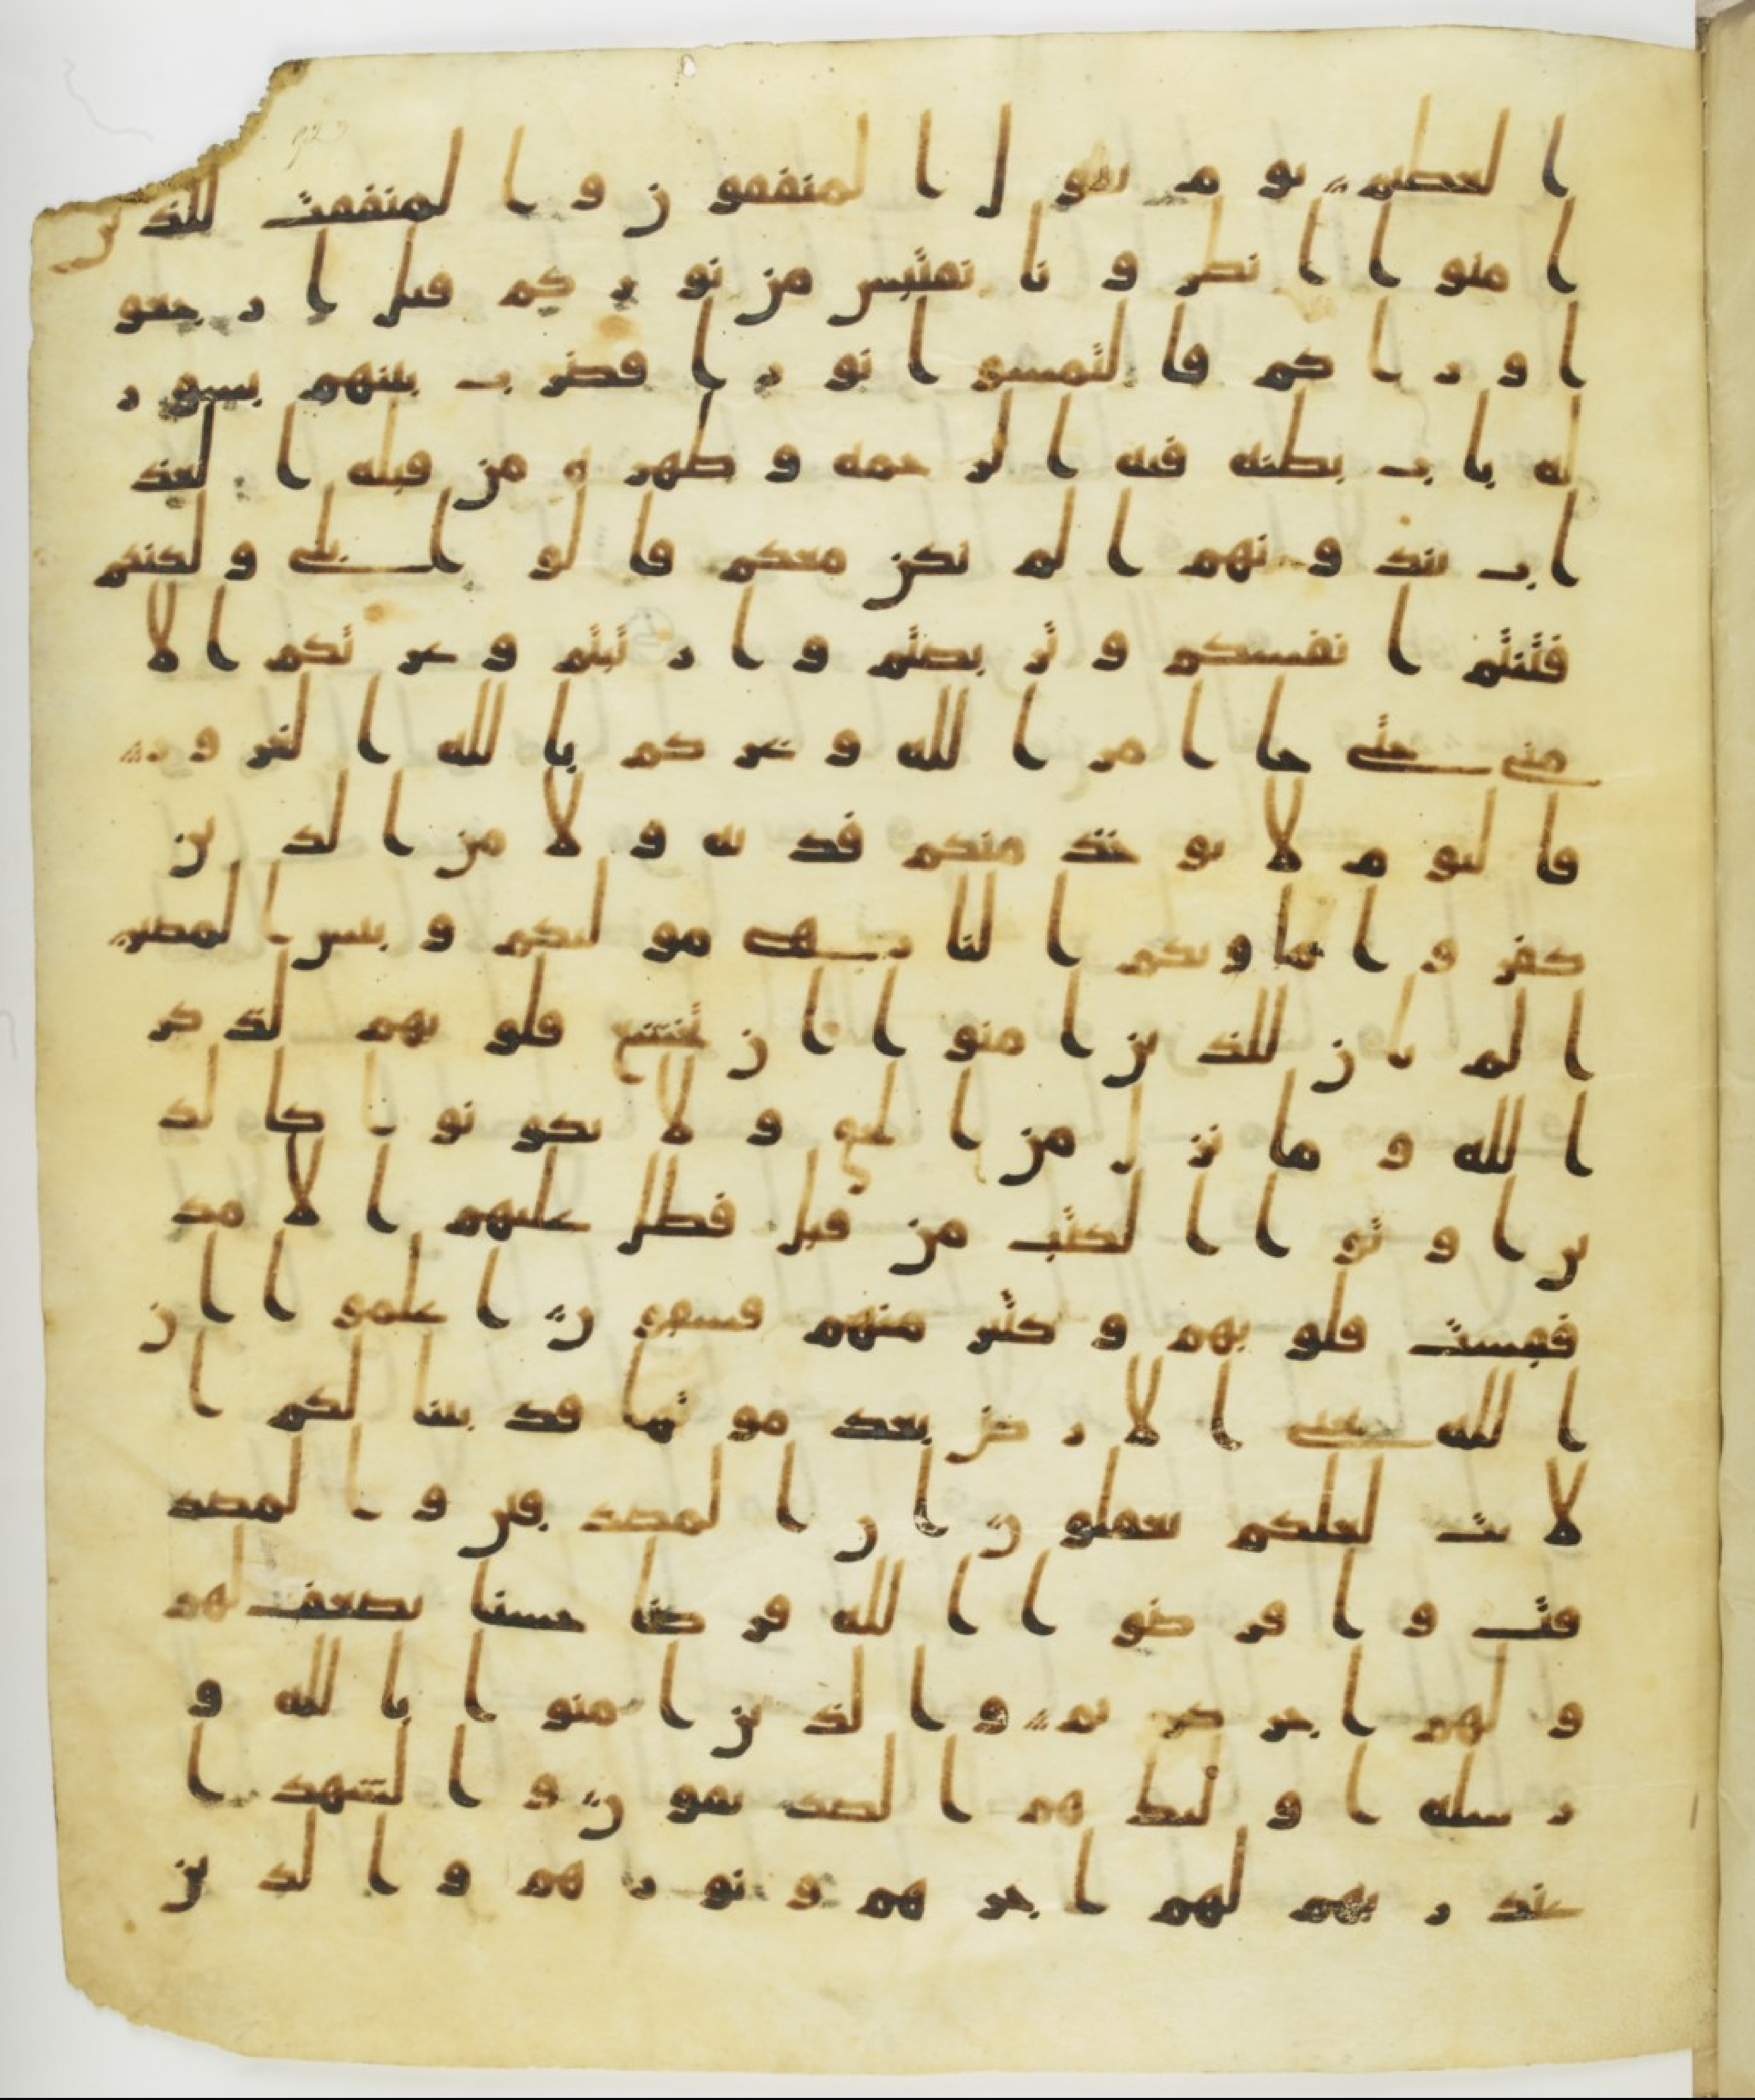 العظيم يوم يقول المنفقون والمنفقت للذين
امنوا انظرونا نقتبس من نوركم قيل ارجعو
ا وراكم فالتمسوا نورا فضرب بينهم بسور
له باب بطنه فيه الرحمه وظهره من قبله العذ
اب يندونهم الم نكن معكم قالوا بلى ولكنكم
فتنتم انفسكم وتربصتم وارتبتم وغرتكم الا
منى حتى جا امر الله وغركم بالله الغرور
فاليوم لا يوخذ منكم فديه ولا من الذين
كفروا ماويكم النار هى موليكم وبيس المصير
الم يان للذين امنوا ان تخشع قلوبهم لذكر
الله وما نزل من الحق ولا يكونوا كالذ
ين اوتوا الكتب من قبل فطل عليهم الامد
فقست قلوبهم وكثير منهم فسقون اعلموا ان
الله يحى الارض بعد موتها قد بينا لكم ا
لايت لعلكم تعقلون ان المصدقين والمصد
قت واقرضوا الله قرضا حسنا يضعف لهم
ولهم اجر كريم والذين امنوا بالله و
رسله اوليك هم الصديقون والشهدا
عند ربهم لهم اجرهم ونورهم والذين